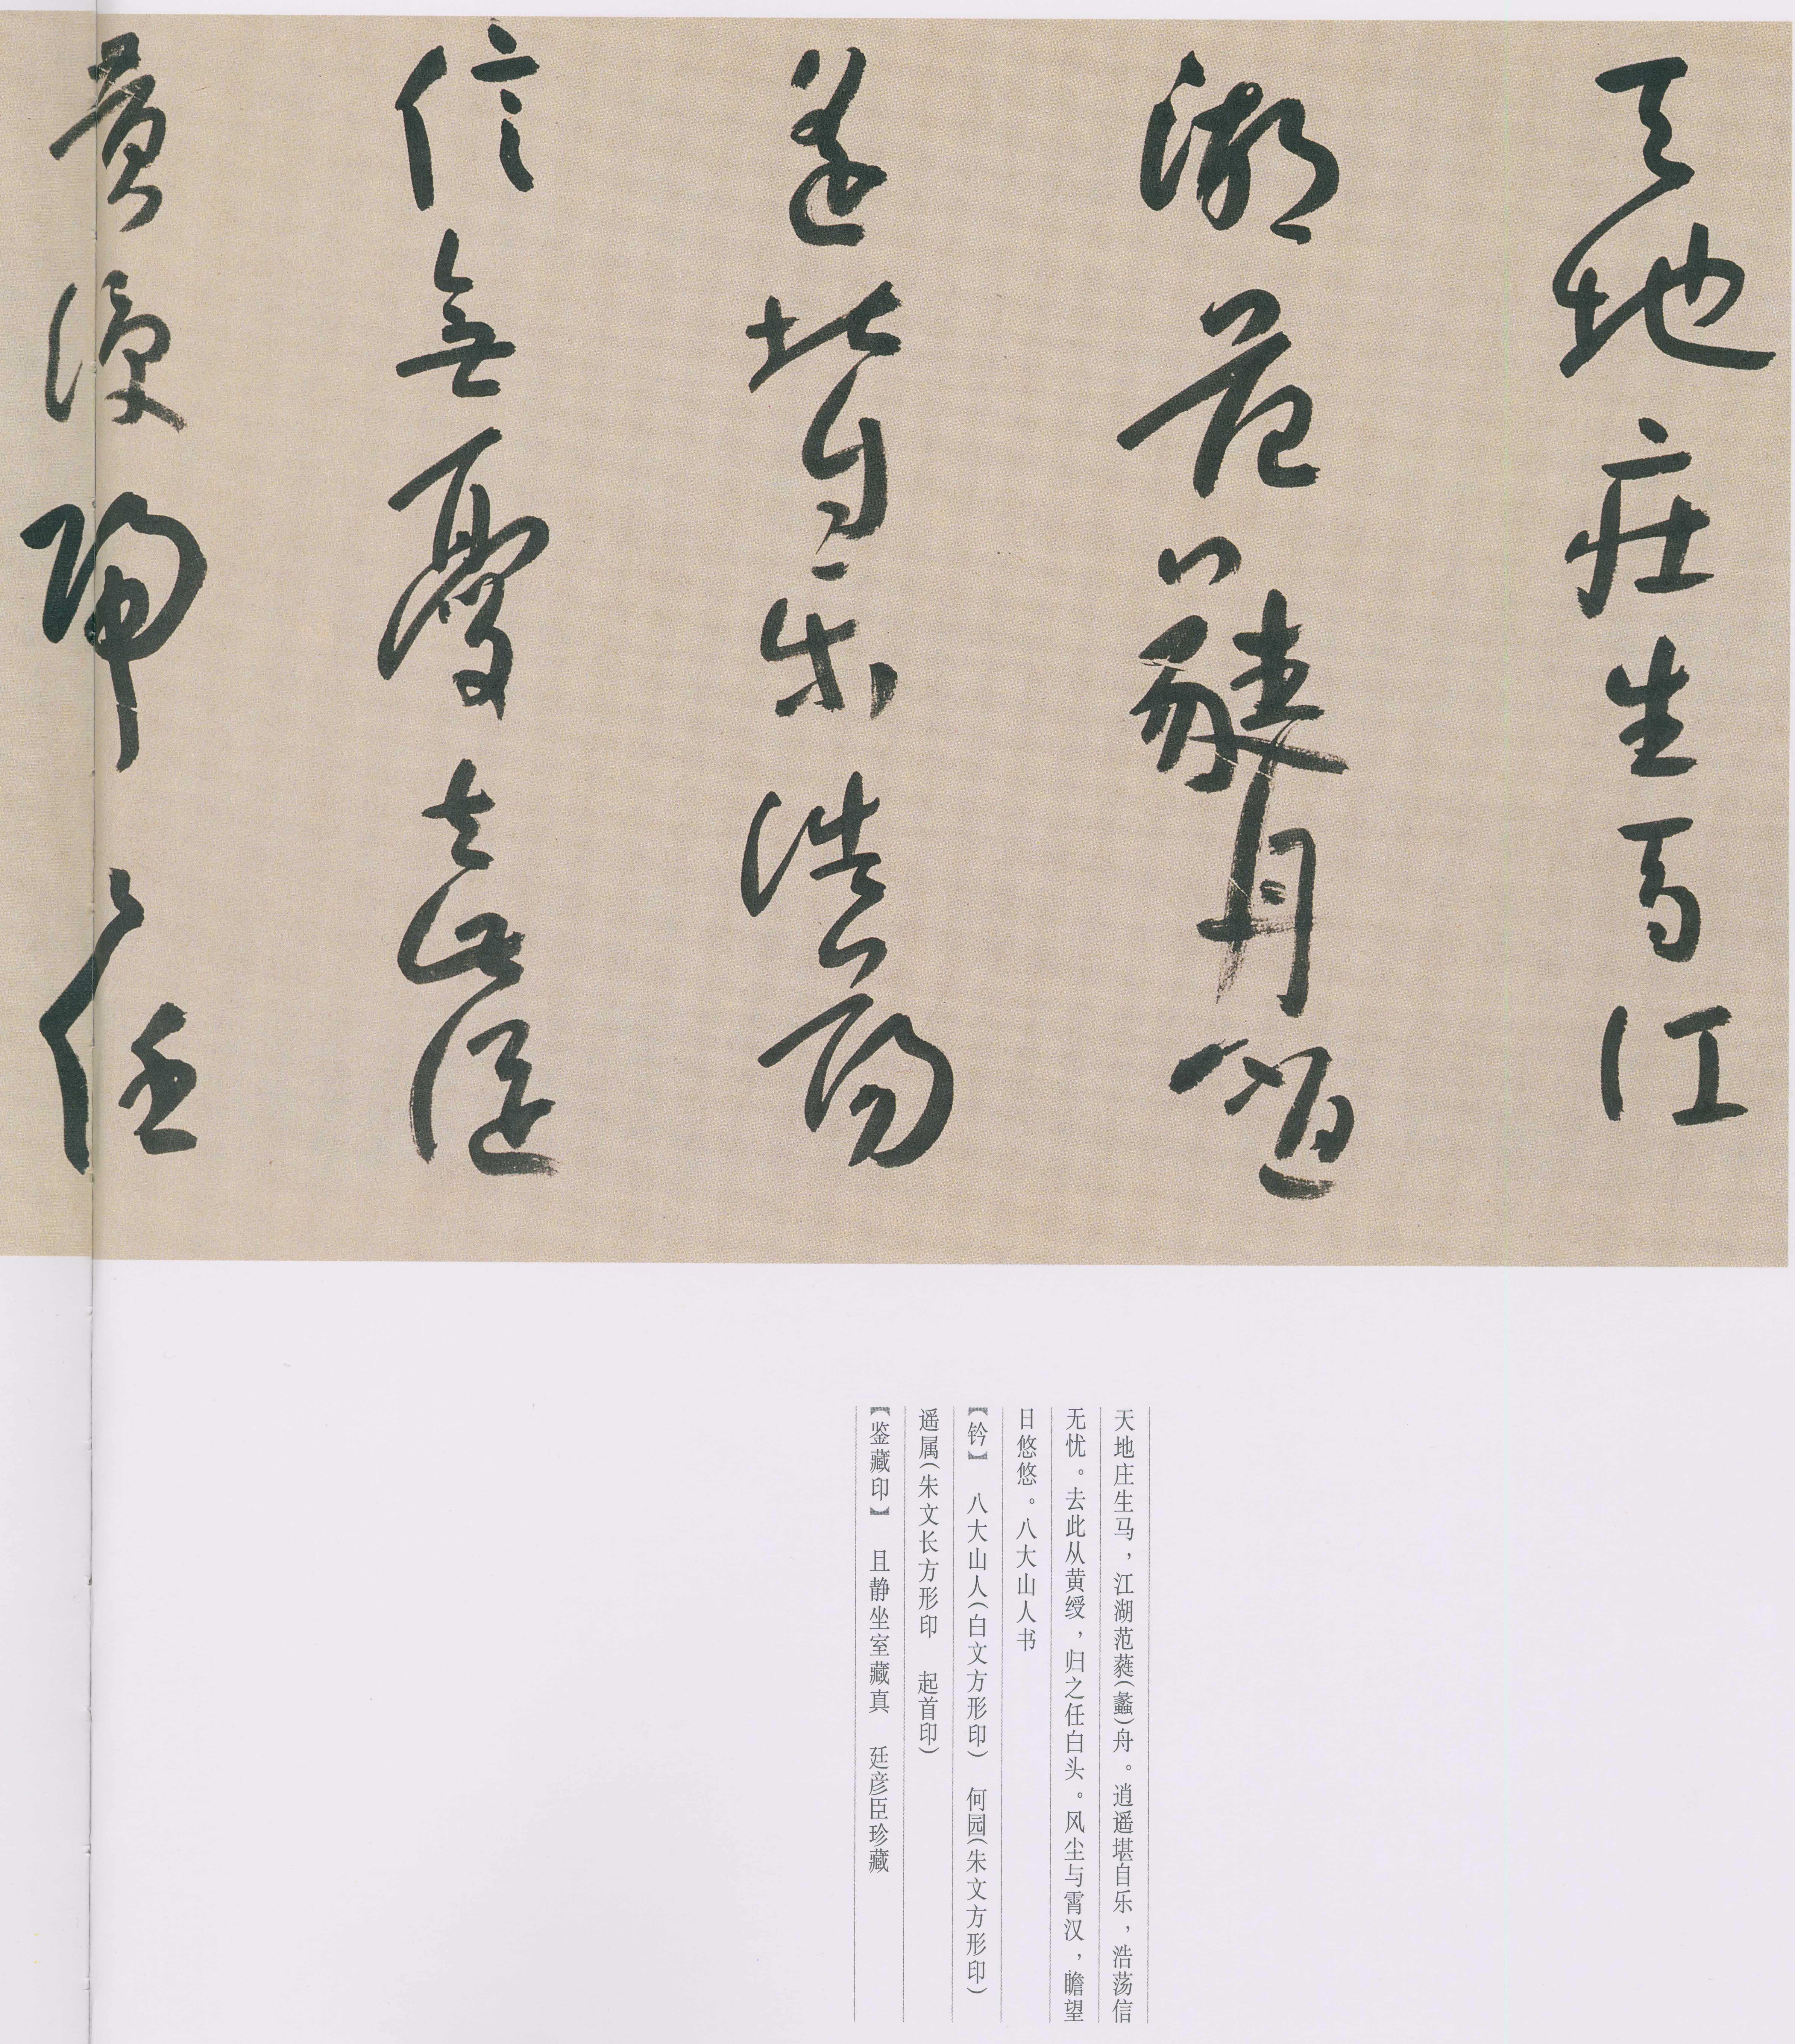 天地庄生馬江
湖范蕤舟逍
遥堪自乐浩荡
信無憂去此從
黄绶歸之任
天地庄生马，江湖范蕤(蠡)舟。逍遥堪自乐，浩荡信
无忧。去此从黄绶，归之任白头。风尘与霄汉，瞻望
日悠悠。八大山人书
【钤】 八大山人(白文方形印) 何园(朱文方形印)
遥属(朱文长方形印 起首印)
【鉴藏印】 且静坐室藏真 廷彦臣珍藏